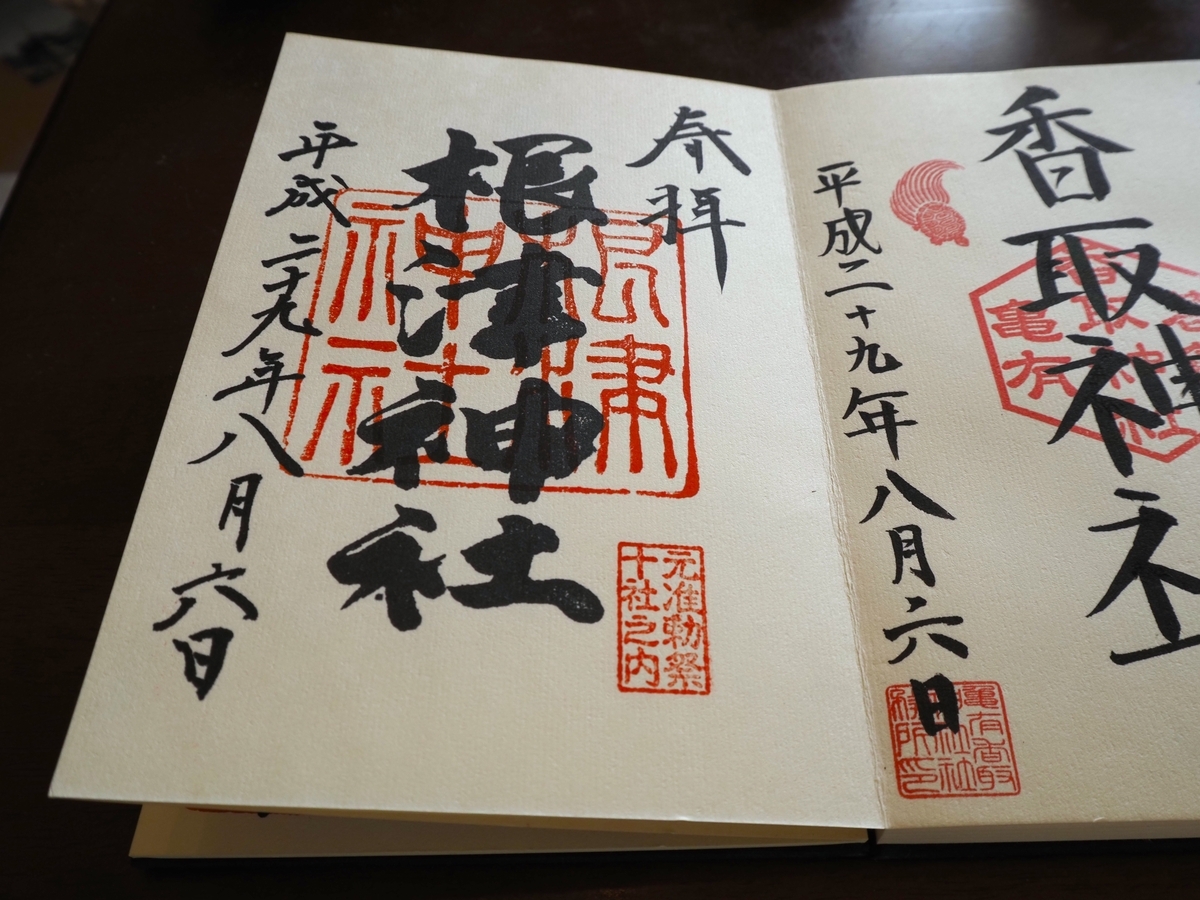 香取神社
亀有
香取
平成二十九年八月六日
亀有香取
神社社
務所印
奉拝
根津神社
根津
神社
元准勅祭
十社之内
平成二十九年八月六日